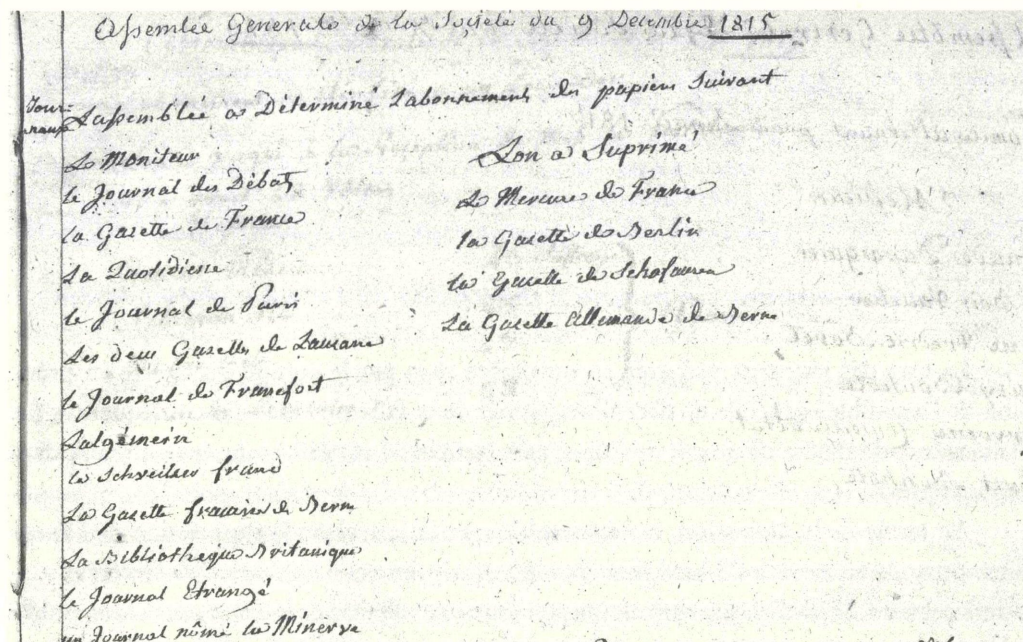 Assemblée Generale de la Société du 9 Decembre 1815
Jour-
naux
Lassemblée a Déterminé Labonnement des papiers Suivant
Le Moniteur
le Journal des Débats
la Gazette de France
La Quotidiene
le Journal de Paris
Les deux Gazettes de Lausane
le Journal de Francfort
Lalgémein
le franc
La Gazette de Berne
La Bibliotheque Britanique
le Journal Etrangé
un Journal nômé la Minerve
Lon a Suprimé
Le Mercure de France
la Gazette de Berlin
la Gazette de Schafausen
La Gazette Allemande de Berne